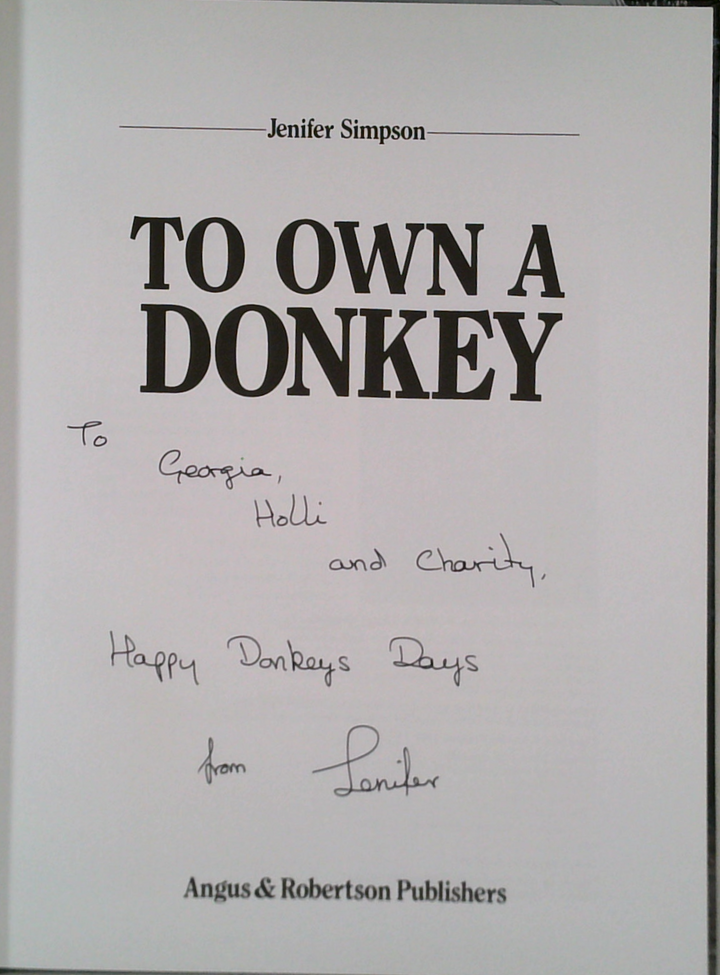 Jenifer Simpson
TO OWN A
DONKEY
To
Georgia,
Holli
and Charity,
Happy Donkeys Days
from Jenifer
Angus & Robertson Publishers